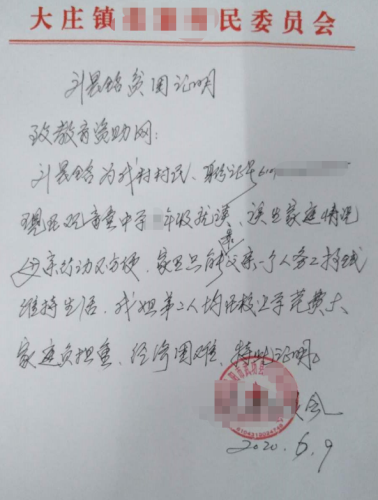 大庄镇 民委员会
贫困证明
致教育资助网：
为我村村民、身份证号61
现在观音堂中学 年级就读，该生家庭情况
父亲行动不方便，家里只能父亲一个人务工持续
维持生活，我姐弟二人均在校上学花费大
家庭负担重、经济困难，特此证明。
2020.6.9